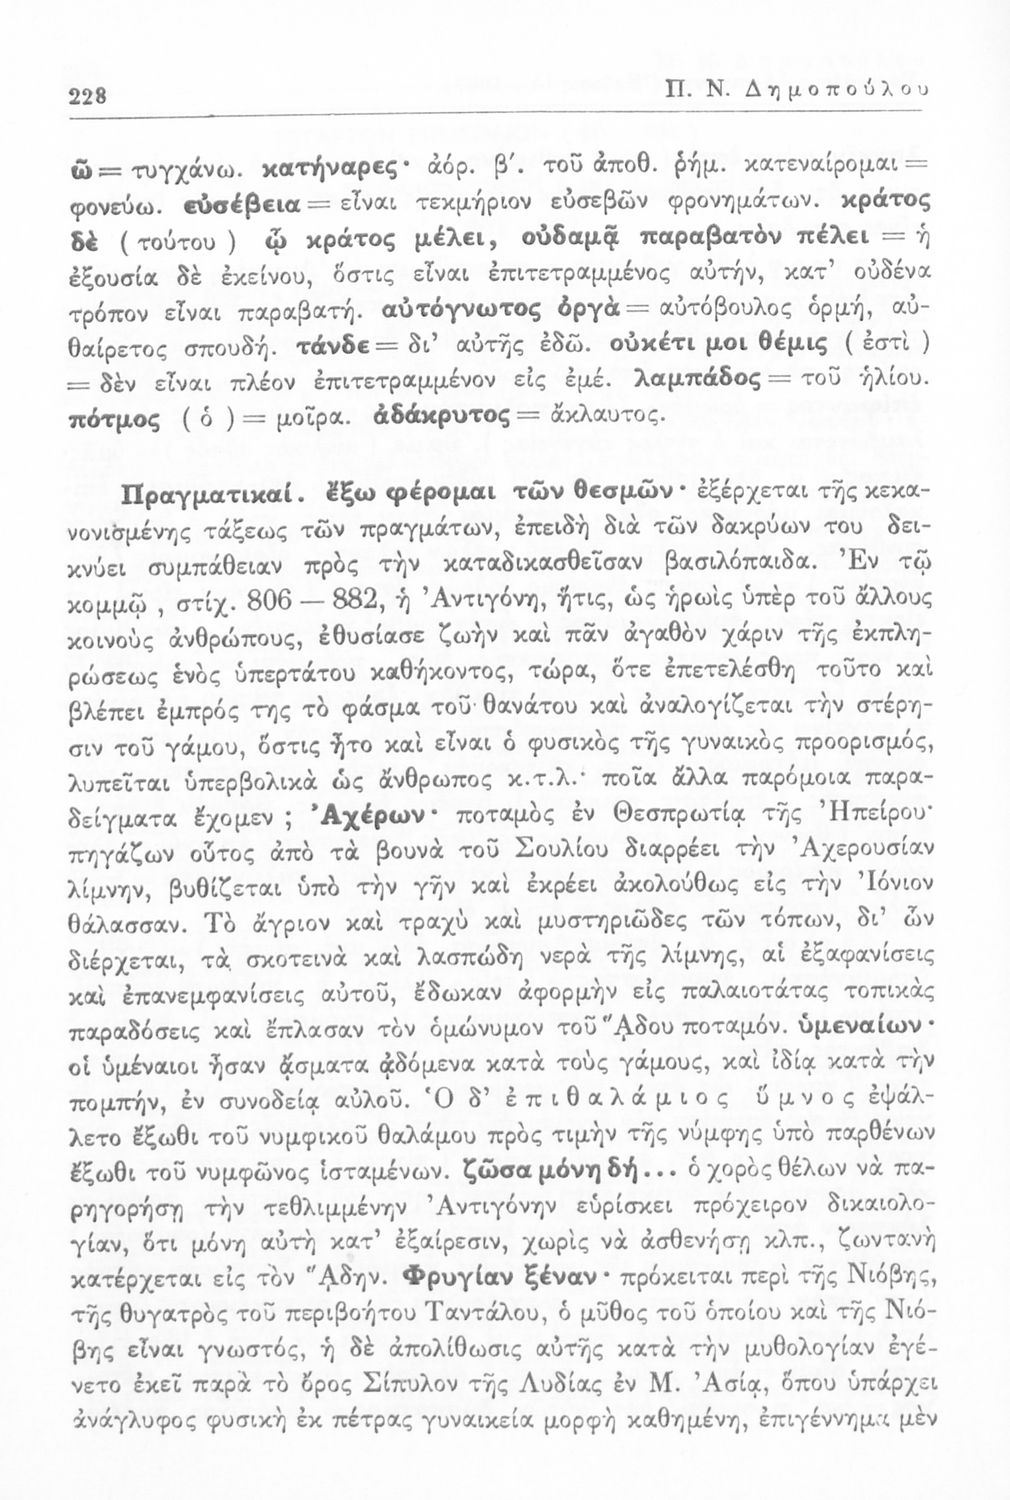 228
Π. Ν. Δημοπούλου
ὦ = τυγχάνω. κατήναρες· ἀόρ. β΄. τοῦ ἀποθ. ῥήμ. κατεναίρομαι =
φονεύω. εὐσέβεια = εἶναι τεκμήριον εὐσεβῶν φρονημάτων. κράτος
δὲ ( τούτου ) ᾧ κράτος μέλει, οὐδαμᾷ παραβατὸν πέλει = ἡ
ἐξουσία δὲ ἐκείνου, ὅστις εἶναι ἐπιτετραμμένος αὐτήν, κατ’ οὐδένα
τρόπον εἶναι παραβατή. αὐτόγνωτος ὀργὰ = αὐτόβουλος ὁρμή, αὐ-
θαίρετος σπουδή. τάνδε = δι’ αὐτῆς ἐδῶ. οὐκέτι μοι θέμις ( ἐστὶ )
= δὲν εἶναι πλέον ἐπιτετραμμένον εἰς ἐμέ. λαμπάδος = τοῦ ἡλίου.
πότμος ( ὁ ) = μοῖρα. ἀδάκρυτος = ἄκλαυτος.
Πραγματικαί. ἔξω φέρομαι τῶν θεσμῶν· ἐξέρχεται τῆς κεκα-
νονισμένης τάξεως τῶν πραγμάτων, ἐπειδὴ διὰ τῶν δακρύων του δει-
κνύει συμπάθειαν πρὸς τὴν καταδικασθεῖσαν βασιλόπαιδα. Ἐν τῷ
κομμῷ , στίχ. 806 — 882, ἡ Ἀντιγόνη, ἥτις, ὡς ἡρωὶς ὑπὲρ τοῦ ἄλλους
κοινοὺς ἀνθρώπους, ἐθυσίασε ζωὴν καὶ πᾶν ἀγαθὸν χάριν τῆς ἐκπλη-
ρώσεως ἑνὸς ὑπερτάτου καθήκοντος, τώρα, ὅτε ἐπετελέσθη τοῦτο καὶ
βλέπει ἐμπρός της τὸ φάσμα τοῦ θανάτου καὶ ἀναλογίζεται τὴν στέρη-
σιν τοῦ γάμου, ὅστις ἦτο καὶ εἶναι ὁ φυσικὸς τῆς γυναικὸς προορισμός,
λυπεῖται ὑπερβολικὰ ὡς ἄνθρωπος κ.τ.λ.· ποῖα ἄλλα παρόμοια παρα-
δείγματα ἔχομεν ; Ἀχέρων· ποταμὸς ἐν Θεσπρωτίᾳ τῆς Ἠπείρου·
πηγάζων οὗτος ἀπὸ τὰ βουνὰ τοῦ Σουλίου διαρρέει τὴν Ἀχερουσίαν
λίμνην, βυθίζεται ὑπὸ τὴν γῆν καὶ ἐκρέει ἀκολούθως εἰς τὴν Ἰόνιον
θάλασσαν. Τὸ ἄγριον καὶ τραχὺ καὶ μυστηριῶδες τῶν τόπων, δι’ ὧν
διέρχεται, τὰ σκοτεινὰ καὶ λασπώδη νερὰ τῆς λίμνης, αἱ ἐξαφανίσεις
καὶ ἐπανεμφανίσεις αὐτοῦ, ἔδωκαν ἀφορμὴν εἰς παλαιοτάτας τοπικὰς
παραδόσεις καὶ ἔπλασαν τὸν ὁμώνυμον τοῦ ᾍδου ποταμόν. ὑμεναίων·
οἱ ὑμέναιοι ἦσαν ᾄσματα ᾀδόμενα κατὰ τοὺς γάμους, καὶ ἰδίᾳ κατὰ τὴν
πομπήν, ἐν συνοδείᾳ αὐλοῦ. Ὁ δ’ ἐπιθαλάμιος ὕμνος ἐψάλ-
λετο ἔξωθι τοῦ νυμφικοῦ θαλάμου πρὸς τιμὴν τῆς νύμφης ὑπὸ παρθένων
ἔξωθι τοῦ νυμφῶνος ἱσταμένων. ζῶσα μόνη δή... ὁ χορὸς θέλων νὰ πα-
ρηγορήσῃ τὴν τεθλιμμένην Ἀντιγόνην εὑρίσκει πρόχειρον δικαιολο-
γίαν, ὅτι μόνη αὐτὴ κατ’ ἐξαίρεσιν, χωρὶς νὰ ἀσθενήσῃ κλπ., ζωντανὴ
κατέρχεται εἰς τὸν ᾍδην. Φρυγίαν ξέναν· πρόκειται περὶ τῆς Νιόβης,
τῆς θυγατρὸς τοῦ περιβοήτου Ταντάλου, ὁ μῦθος τοῦ ὁποίου καὶ τῆς Νιό-
βης εἶναι γνωστός, ἡ δὲ ἀπολίθωσις αὐτῆς κατὰ τὴν μυθολογίαν ἐγέ-
νετο ἐκεῖ παρὰ τὸ ὄρος Σίπυλον τῆς Λυδίας ἐν Μ. Ἀσίᾳ, ὅπου ὑπάρχει
ἀνάγλυφος φυσικὴ ἐκ πέτρας γυναικεία μορφὴ καθημένη, ἐπιγέννημα μὲν